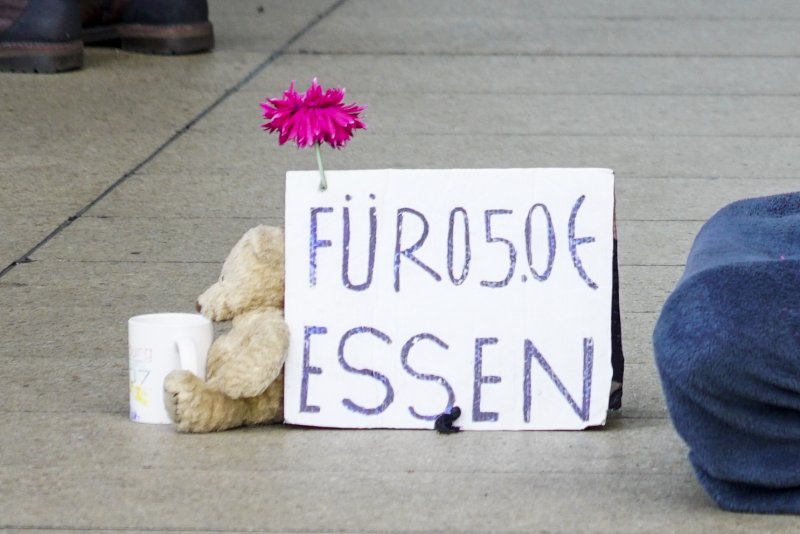 FÜR 05.0€
ESSEN